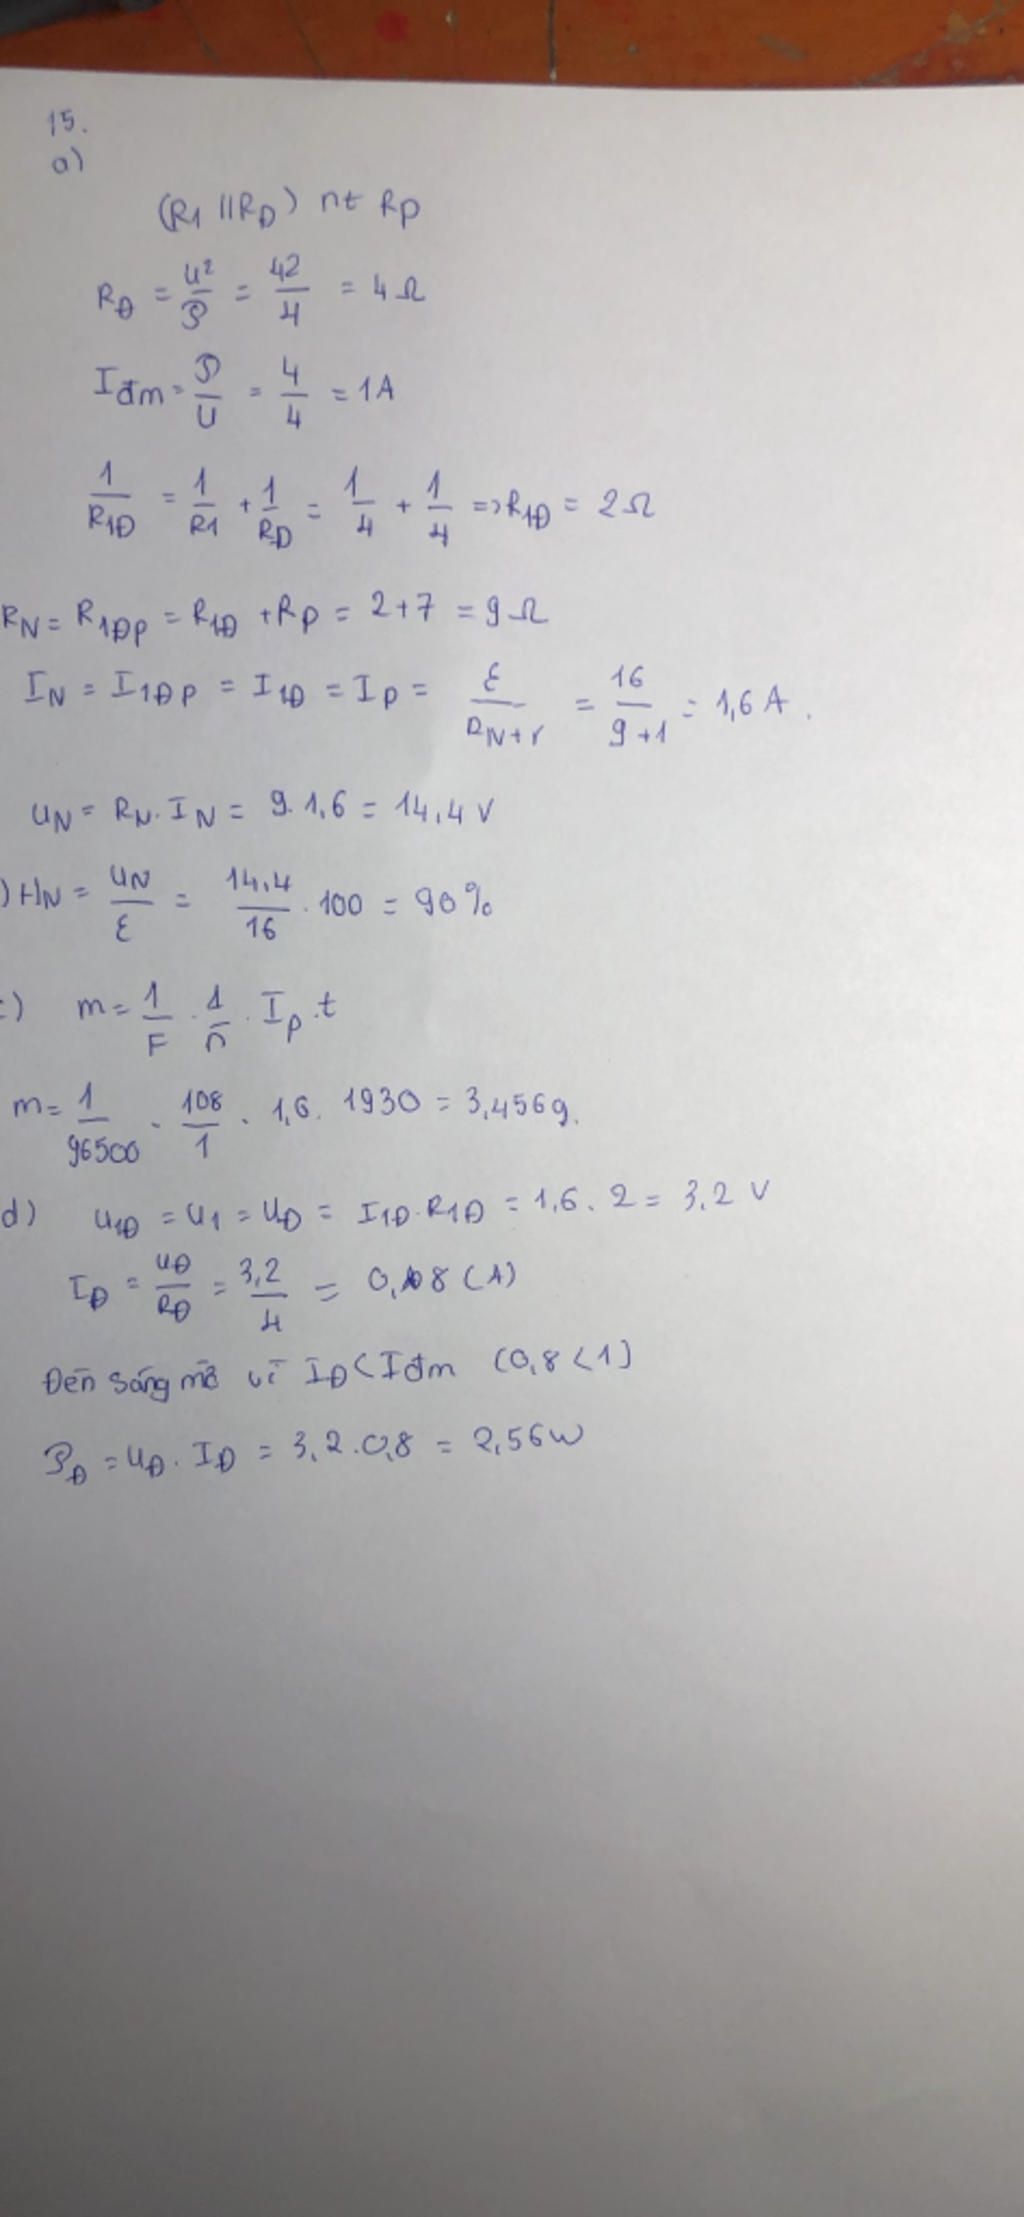 15.
a)
(R1 // RĐ) nt Rp
RĐ = U²/P = 4²/4 = 4Ω
Iđm = P/U = 4/4 = 1A
1/R1Đ = 1/R1 + 1/RĐ = 1/4 + 1/4 => R1Đ = 2Ω
RN = R1Đp = R1Đ + Rp = 2+7 = 9Ω
IN = I1Đp = I1Đ = Ip = ε/RN+r = 16/9+1 = 1,6 A.
UN = RN. IN = 9. 1,6 = 14,4 V
) HN = UN/ε = 14,4/16 . 100 = 90%
c) m = 1/F . A/n . Ip .t
m = 1/96500 . 108/1 . 1,6. 1930 = 3,456g.
d) U1Đ = U1 = UĐ = I1Đ. R1Đ = 1,6. 2 = 3,2 V
IĐ = UĐ/RĐ = 3,2/4 = 0,8 (A)
Đèn sáng mờ vì IĐ < Iđm (0,8 < 1)
PĐ = UĐ. IĐ = 3,2.0,8 = 2,56W